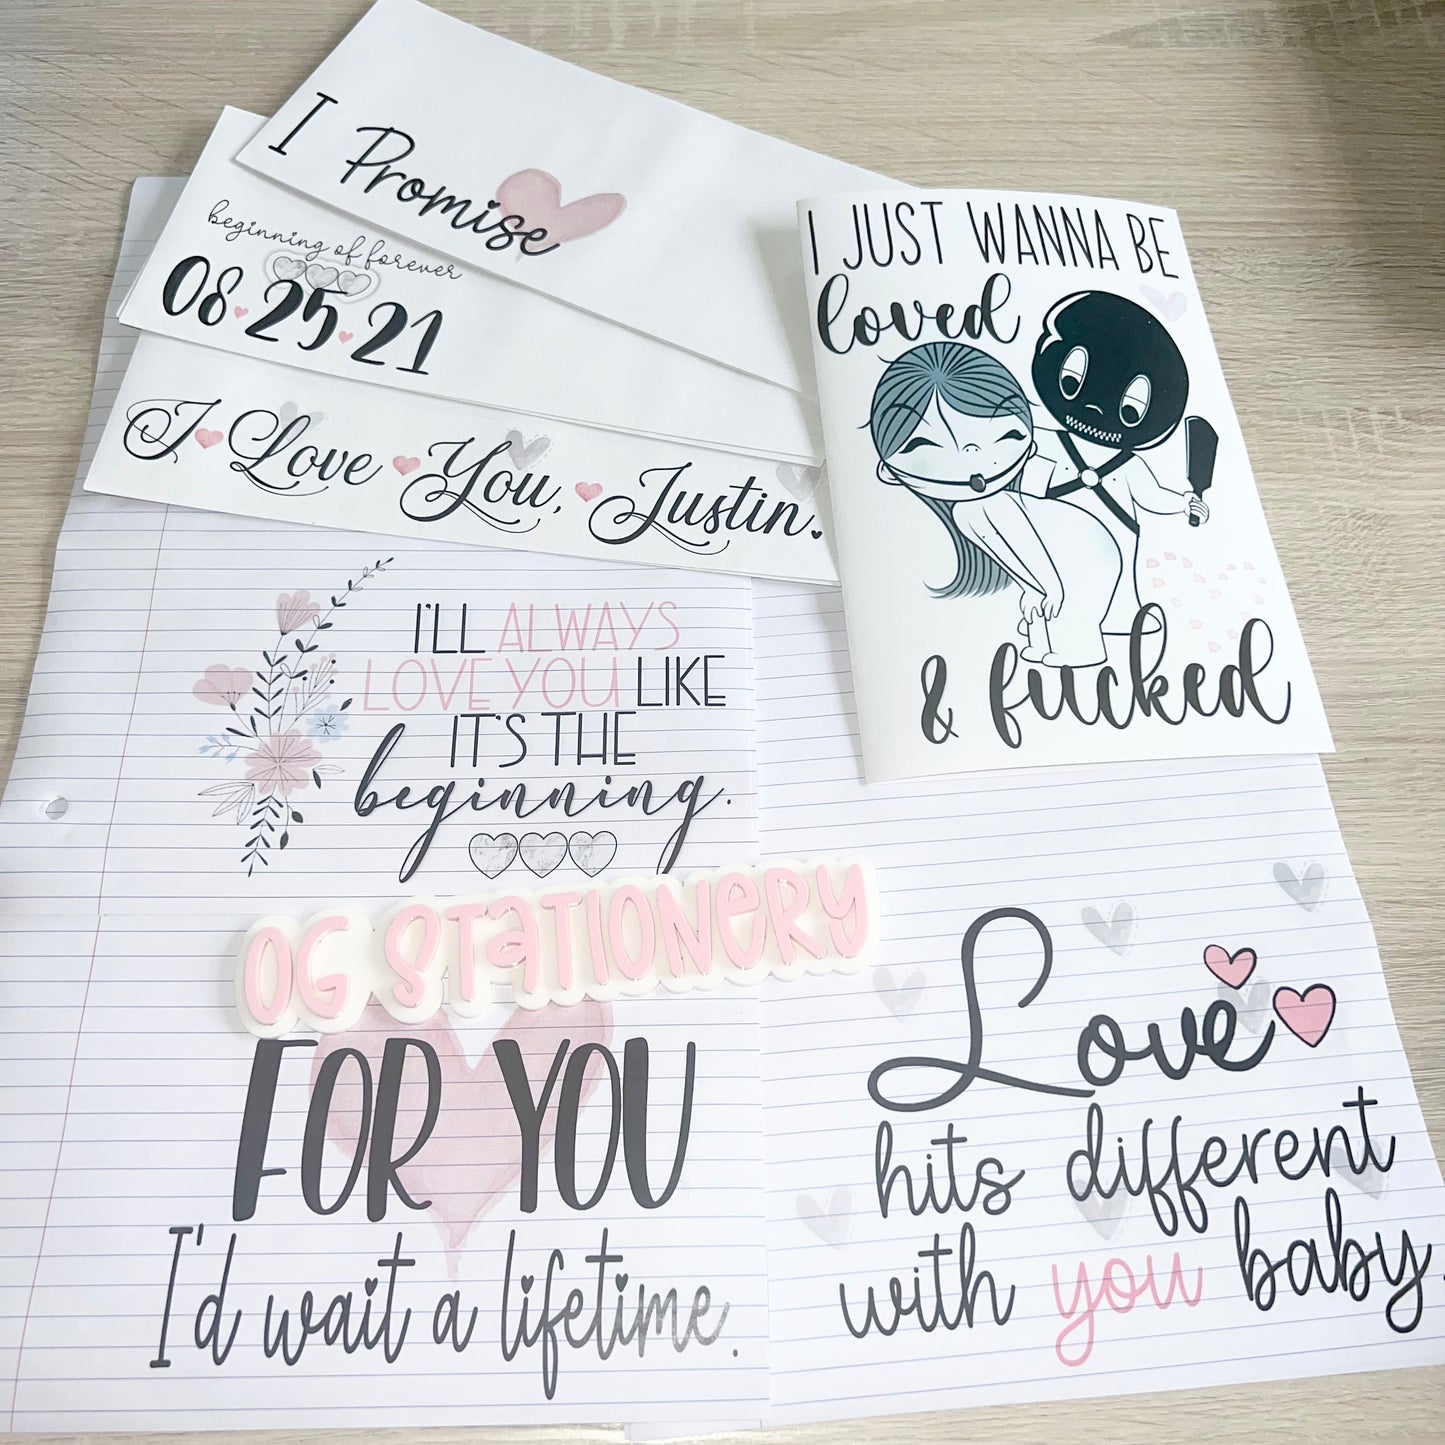 I Promise
beginning of forever
08.25.21
I Love You, Justin.
I JUST WANNA BE
loved
& fucked
I'LL ALWAYS
LOVE YOU LIKE
IT'S THE
beginning.
OG STATIONERY
FOR YOU
I'd wait a lifetime.
Love
hits different
with you baby.